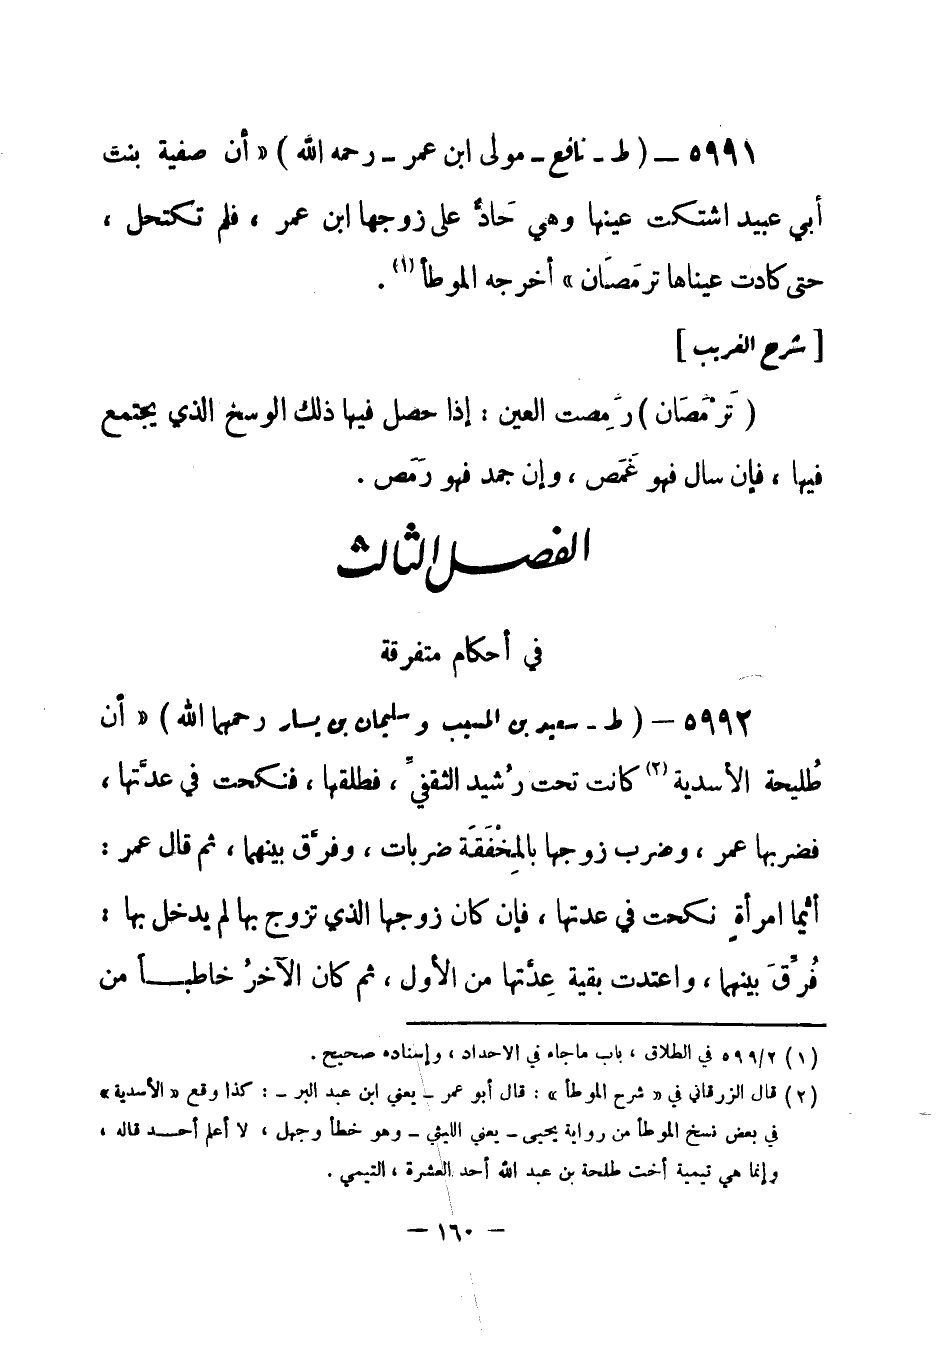 ٥٩٩١ — ( ط - نافع - مولى ابن عمر - رحمه الله ) « أن صفية بنت
أبي عبيد اشتكت عينها وهي حَادٌّ على زوجها ابن عمر ، فلم تكتحل ،
حتى كادت عيناها ترمَصَان » أخرجه الموطأ (١) .
[ شرح الغريب ]
( تَرْمَصَان ) رَمِصت العين : إذا حصل فيها ذلك الوسخ الذي يجتمع
فيها ، فإن سال فهو غَمَص ، وإن جمد فهو رَمَص .
الفصل الثالث
في أحكام متفرقة
٥٩٩٢ — ( ط - سعيد بن المسيب و سليمان بن يسار رحمهما الله ) « أن
طُليحة الأسدية (٢) كانت تحت رُشيد الثقفيِّ ، فطلقها ، فنكحت في عدَّتها ،
فضربها عمر ، وضرب زوجها بالمِخْفَقَة ضربات ، وفرَّق بينهما ، ثم قال عمر :
أيُّما امرأةٍ نكحت في عدتها ، فإن كان زوجها الذي تزوج بها لم يدخل بها :
فُرِّقَ بينهما ، واعتدت بقية عِدَّتها من الأول ، ثم كان الآخرُ خاطبـاً من
(١) ٥٩٩/٢ في الطلاق ، باب ماجاء في الاحداد ، وإسناده صحيح .
(٢) قال الزرقاني في « شرح الموطأ » : قال أبو عمر - يعني ابن عبد البر - : كذا وقع « الأسدية »
في بعض نسخ الموطأ من رواية يحيى - يعني الليثي - وهو خطأ وجهل ، لا أعلم أحـد قاله ،
وإنما هي تيمية أخت طلحة بن عبد الله أحد العشرة ، التيمي .
— ١٦٠ —